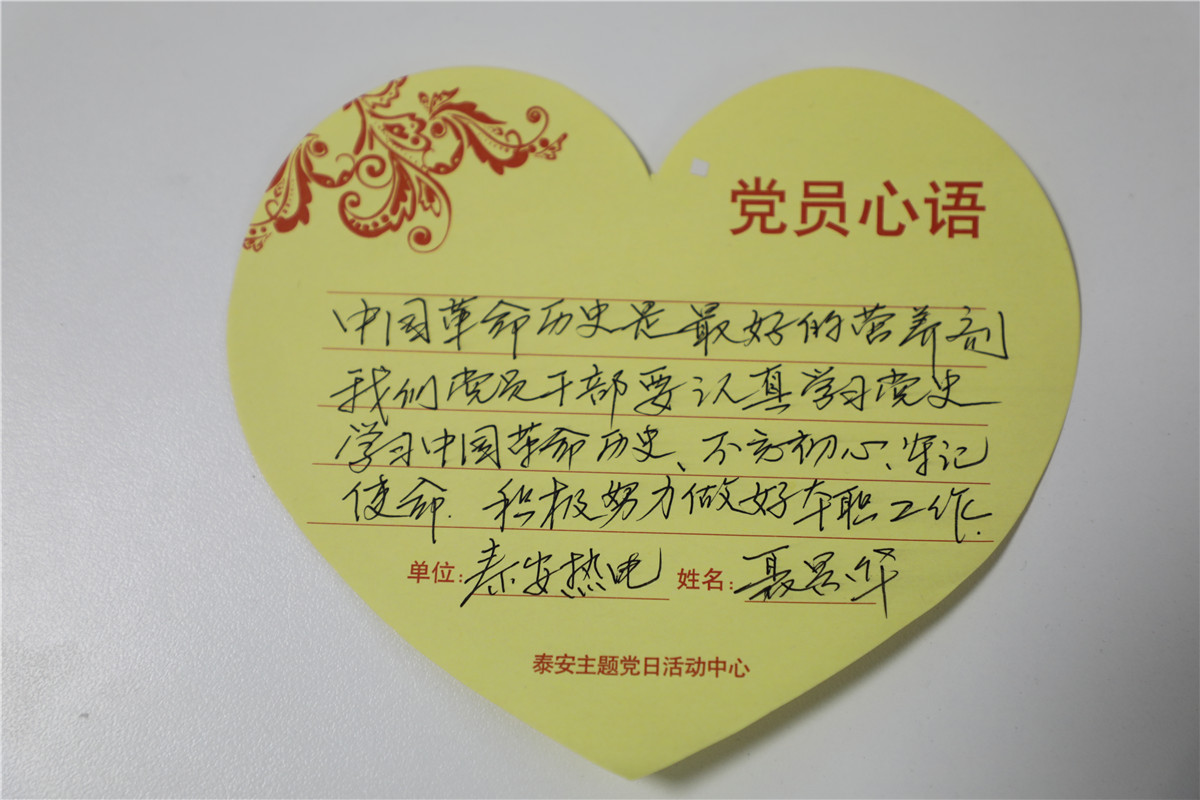 党员心语
中国革命历史是最好的营养剂
我们党员干部要认真学习党史
学习中国革命历史、不忘初心、牢记
使命.积极努力做好本职工作.
单位:泰安热电 姓名:聂思华
泰安主题党日活动中心